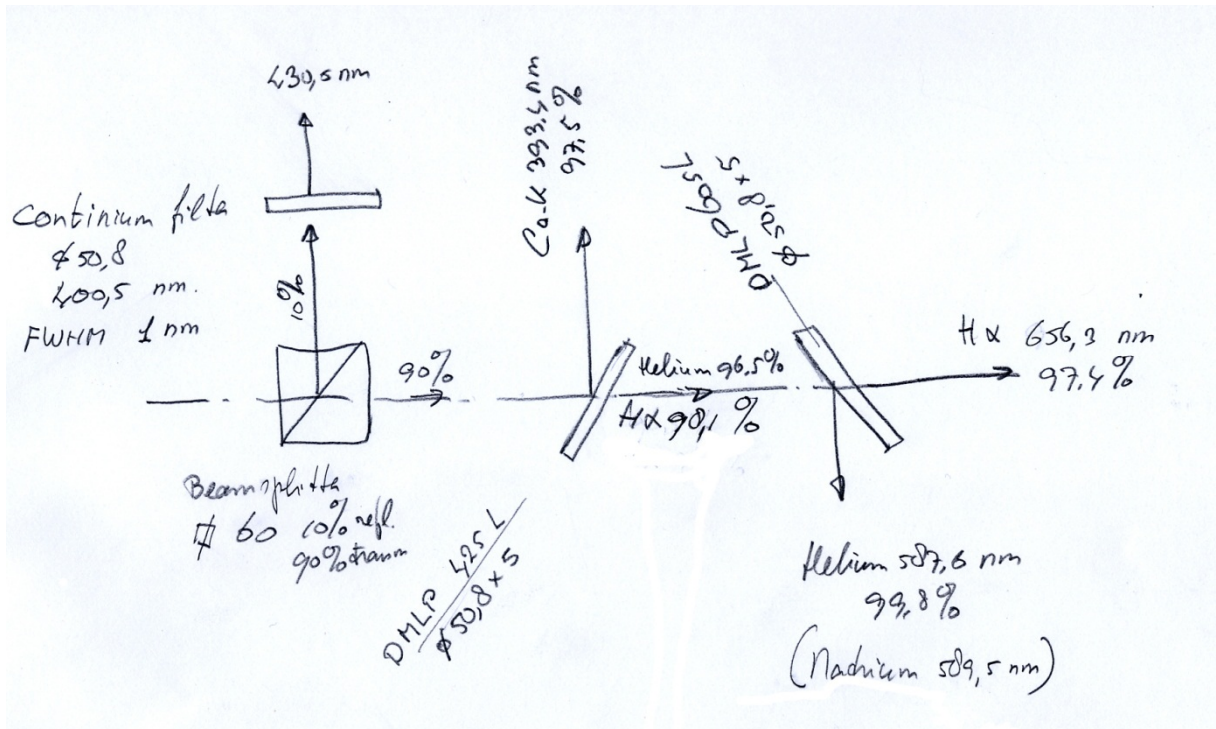 430,5 nm
Continium filter
ϕ 50,8
400,5 nm.
FWHM 1 nm
10%
90%
Beamsplitter
⌀ 60 10% refl.
90% transm
DMLP 425 L
ϕ 50,8 x 5
Ca-K 393,4 nm
97,5%
Helium 96.5%
Hα 98,1 %
DMLP 605 L
ϕ 50,8 x 5
Hα 656,3 nm
97.4%
Helium 587,6 nm
99,8%
(Nadrium 589,5 nm)